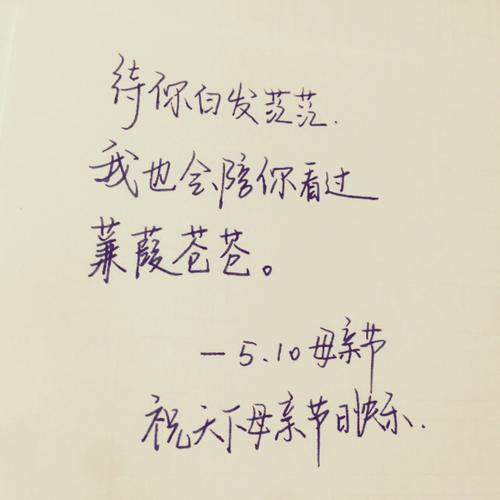 待你白发茫茫.
我也会陪你看过
蒹葭苍苍。
—5.10母亲节
祝天下母亲节日快乐.